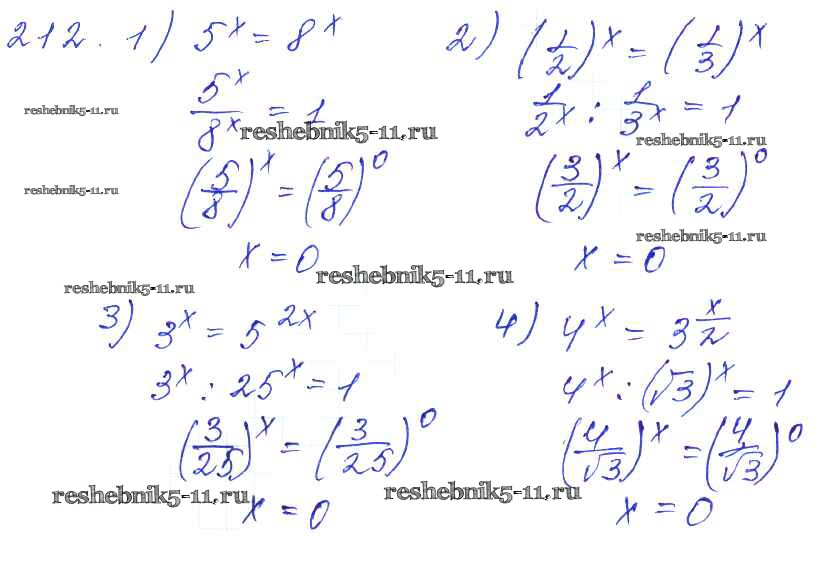 212. 1) 5^x = 8^x
5^x/8^x = 1
(5/8)^x = (5/8)^0
x = 0
2) (1/2)^x = (1/3)^x
1/2^x : 1/3^x = 1
(3/2)^x = (3/2)^0
x = 0
3) 3^x = 5^2x
3^x : 25^x = 1
(3/25)^x = (3/25)^0
x = 0
4) 4^x = 3^x/2
4^x : (√3)^x = 1
(4/√3)^x = (4/√3)^0
x = 0
reshebnik5-11.ru
reshebnik5-11.ru
reshebnik5-11.ru
reshebnik5-11.ru
reshebnik5-11.ru
reshebnik5-11.ru
reshebnik5-11.ru
reshebnik5-11.ru
reshebnik5-11.ru